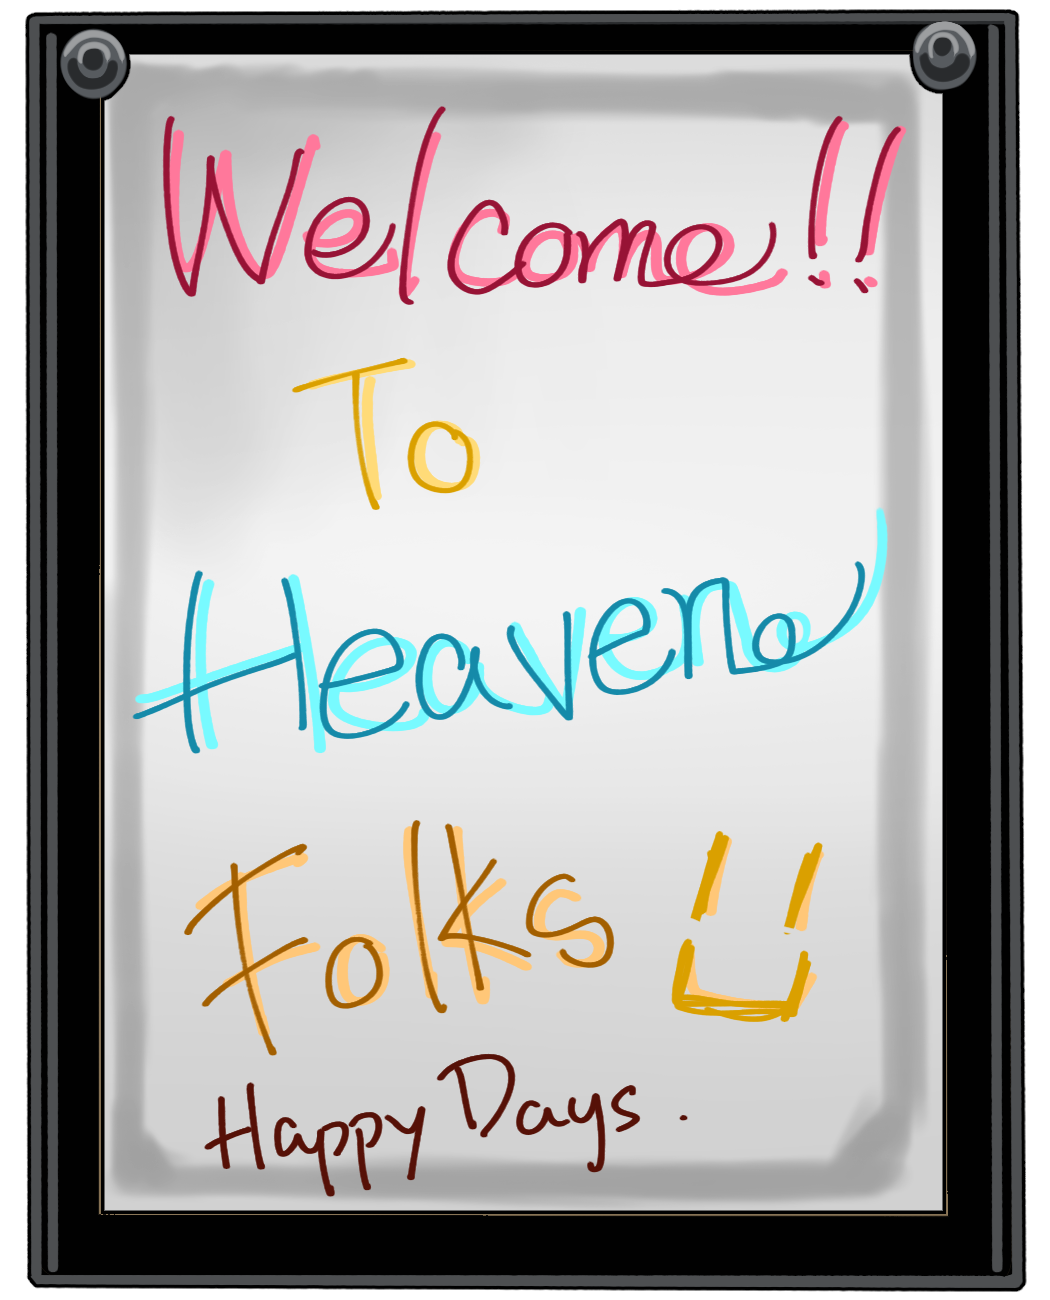 Welcome!!
To
Heaven
Folks
Happy Days.